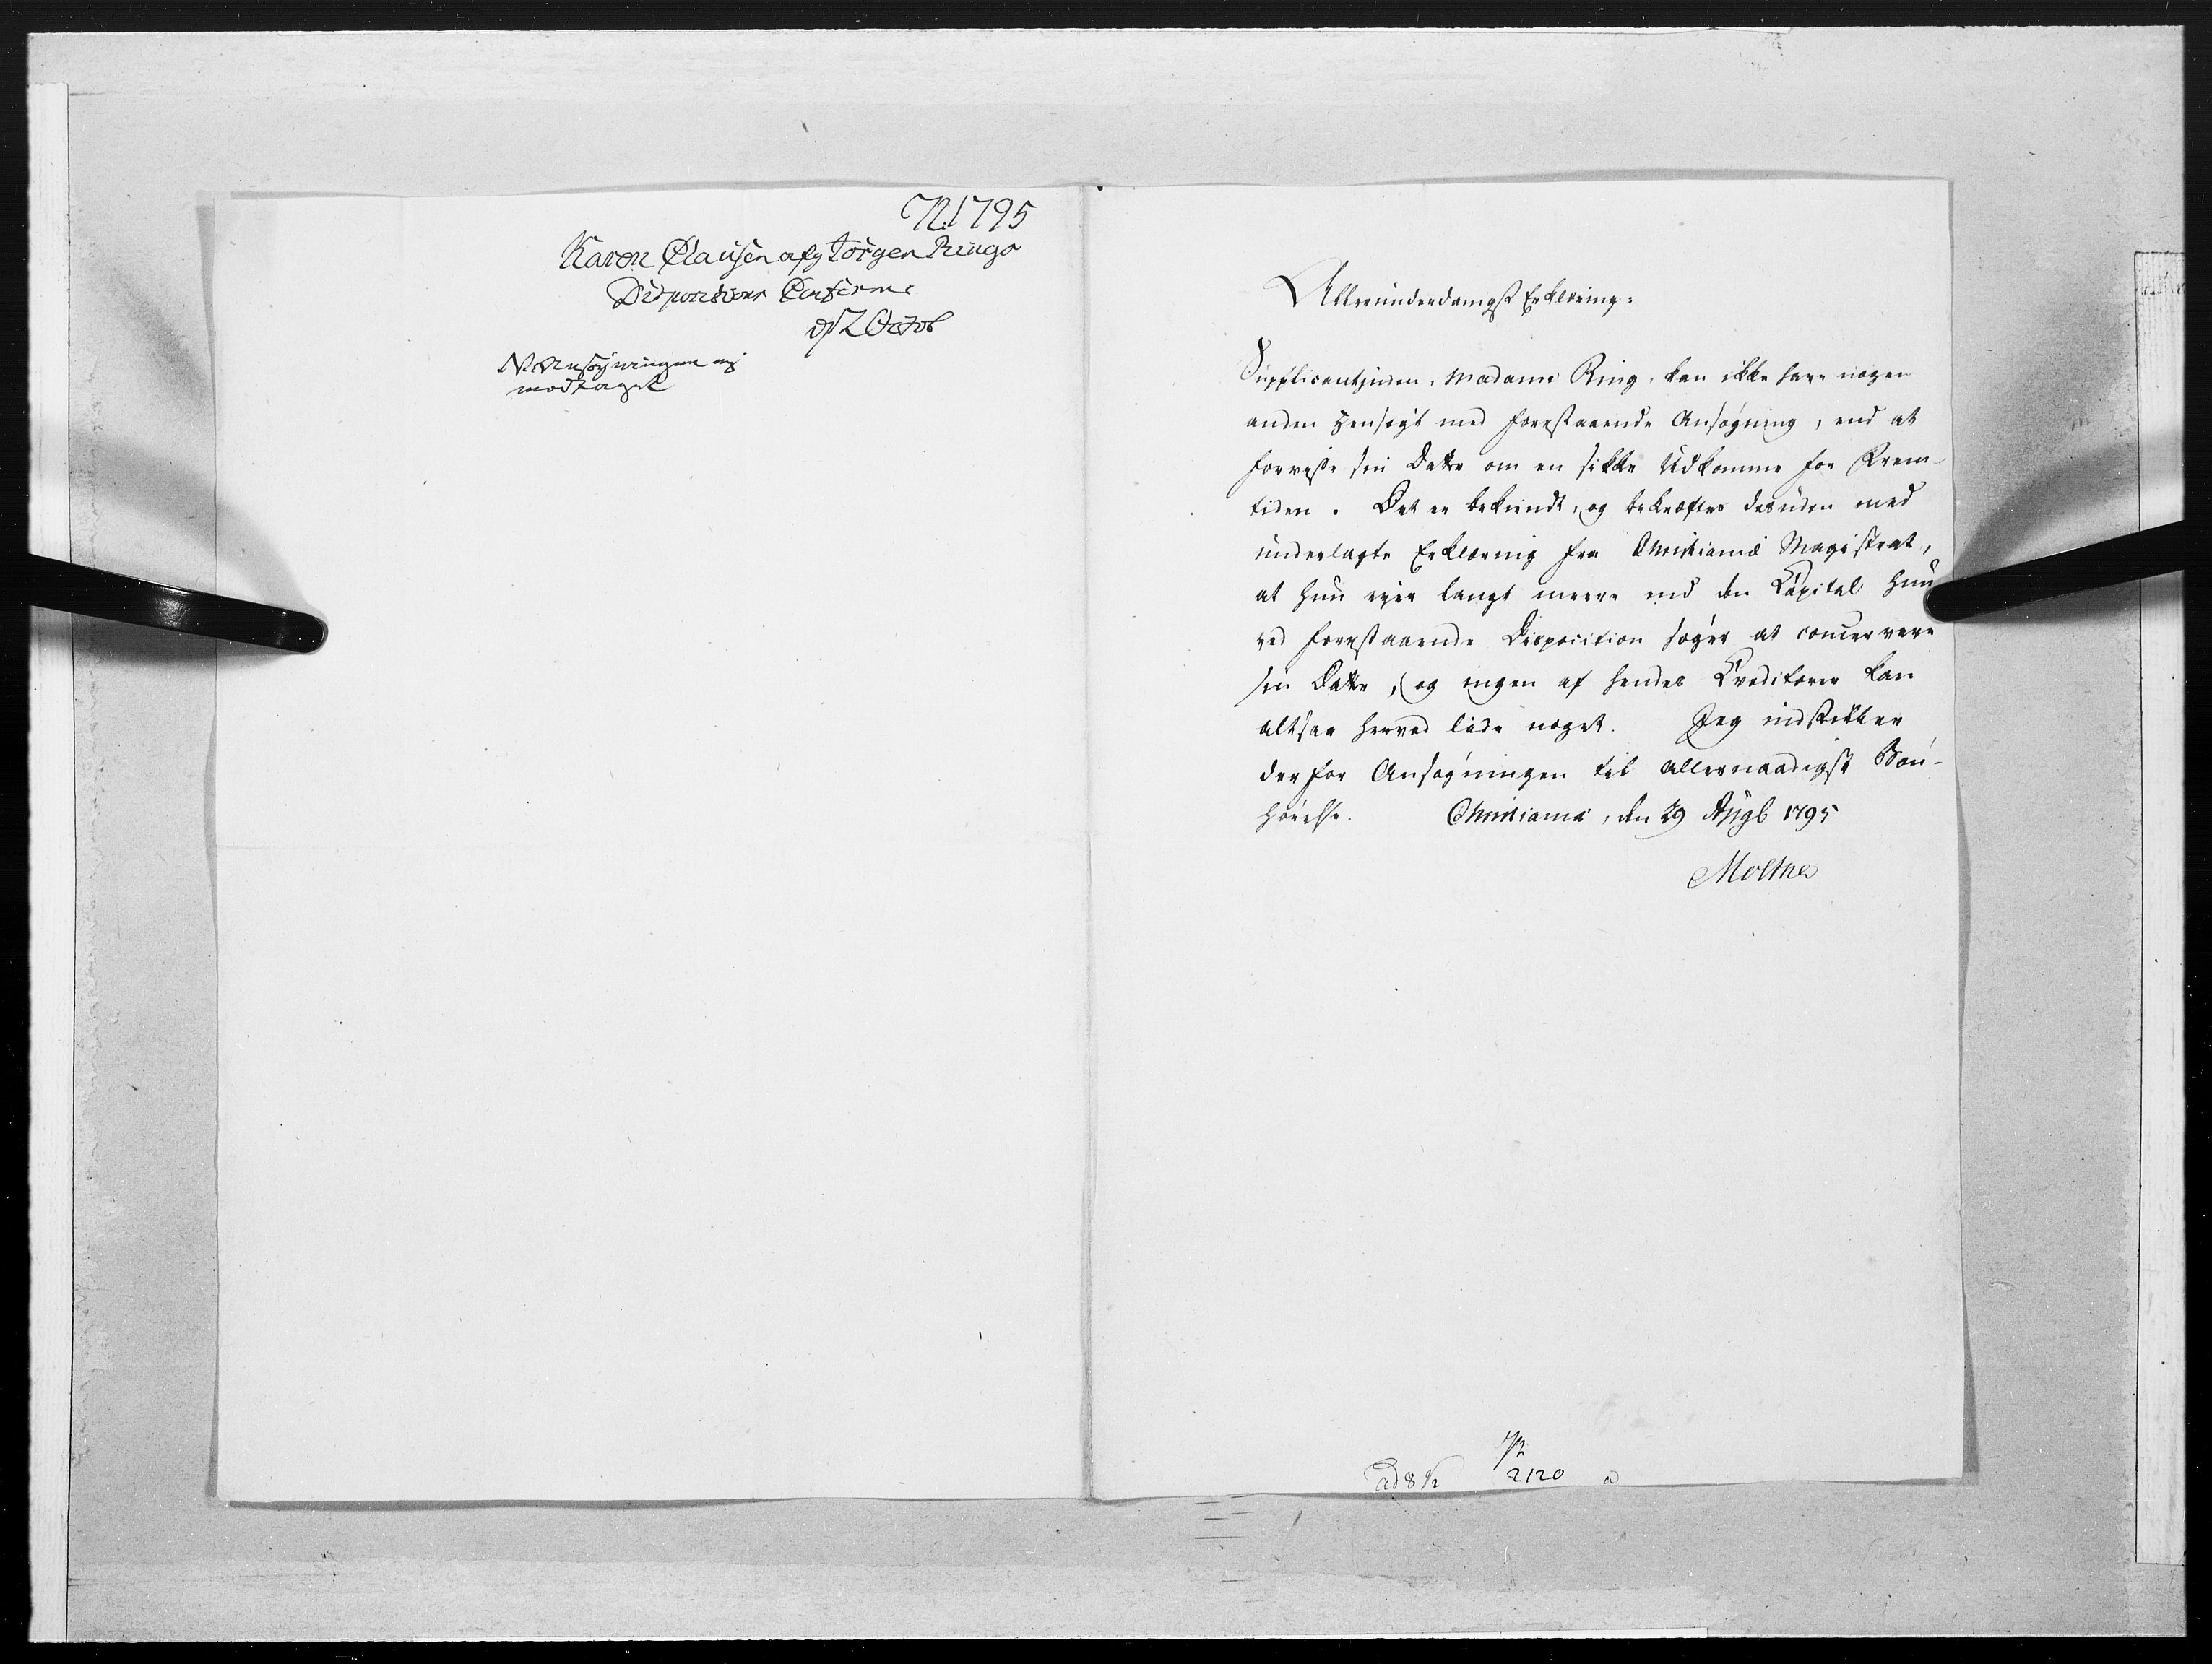 72. 1795
Karen Clausen afg Jörgen Rings
Dispositions Confirm:
d 2 Octob
NB Ansøgningen ej
modtaget
Allerunderdanigst Erklæring:
Supplicantinden, Madame Ring, kan ikke have nogen
anden Hensigt med forestaaende Ansøgning, end at
forvisse sin Datter om en sikker Udkomme for Frem-
tiden. Det er bekiendt, og bekræftes desuden med
underlagte Erklæring fra Christianiæ Magistrat,
at hun eyer langt meere end den Capital hun
ved forestaaende Disposition søger at conservere
sin Datter, og ingen af hendes Creditorer kan
altsaa herved lide noget. Jeg indstiller
derfor Ansøgningen til allernaadigst Bøn-
hørelse. Christiania, den 29 Augs 1795
Moltke
72
ad 8 2120 a